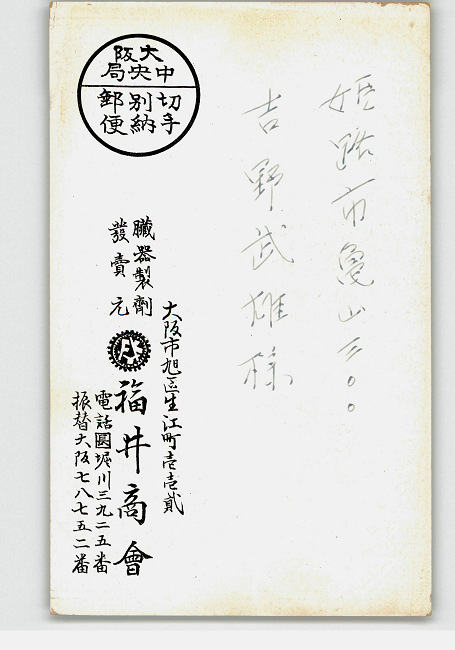 姫路市亀山三〇〇
吉野武雄様
大阪
中央局
切手
別納
郵便
大阪市旭區生江町壱壱貳
臓器製劑
發賣元
福井商會
電話圓堀川三九二五番
振替大阪七八七五二番